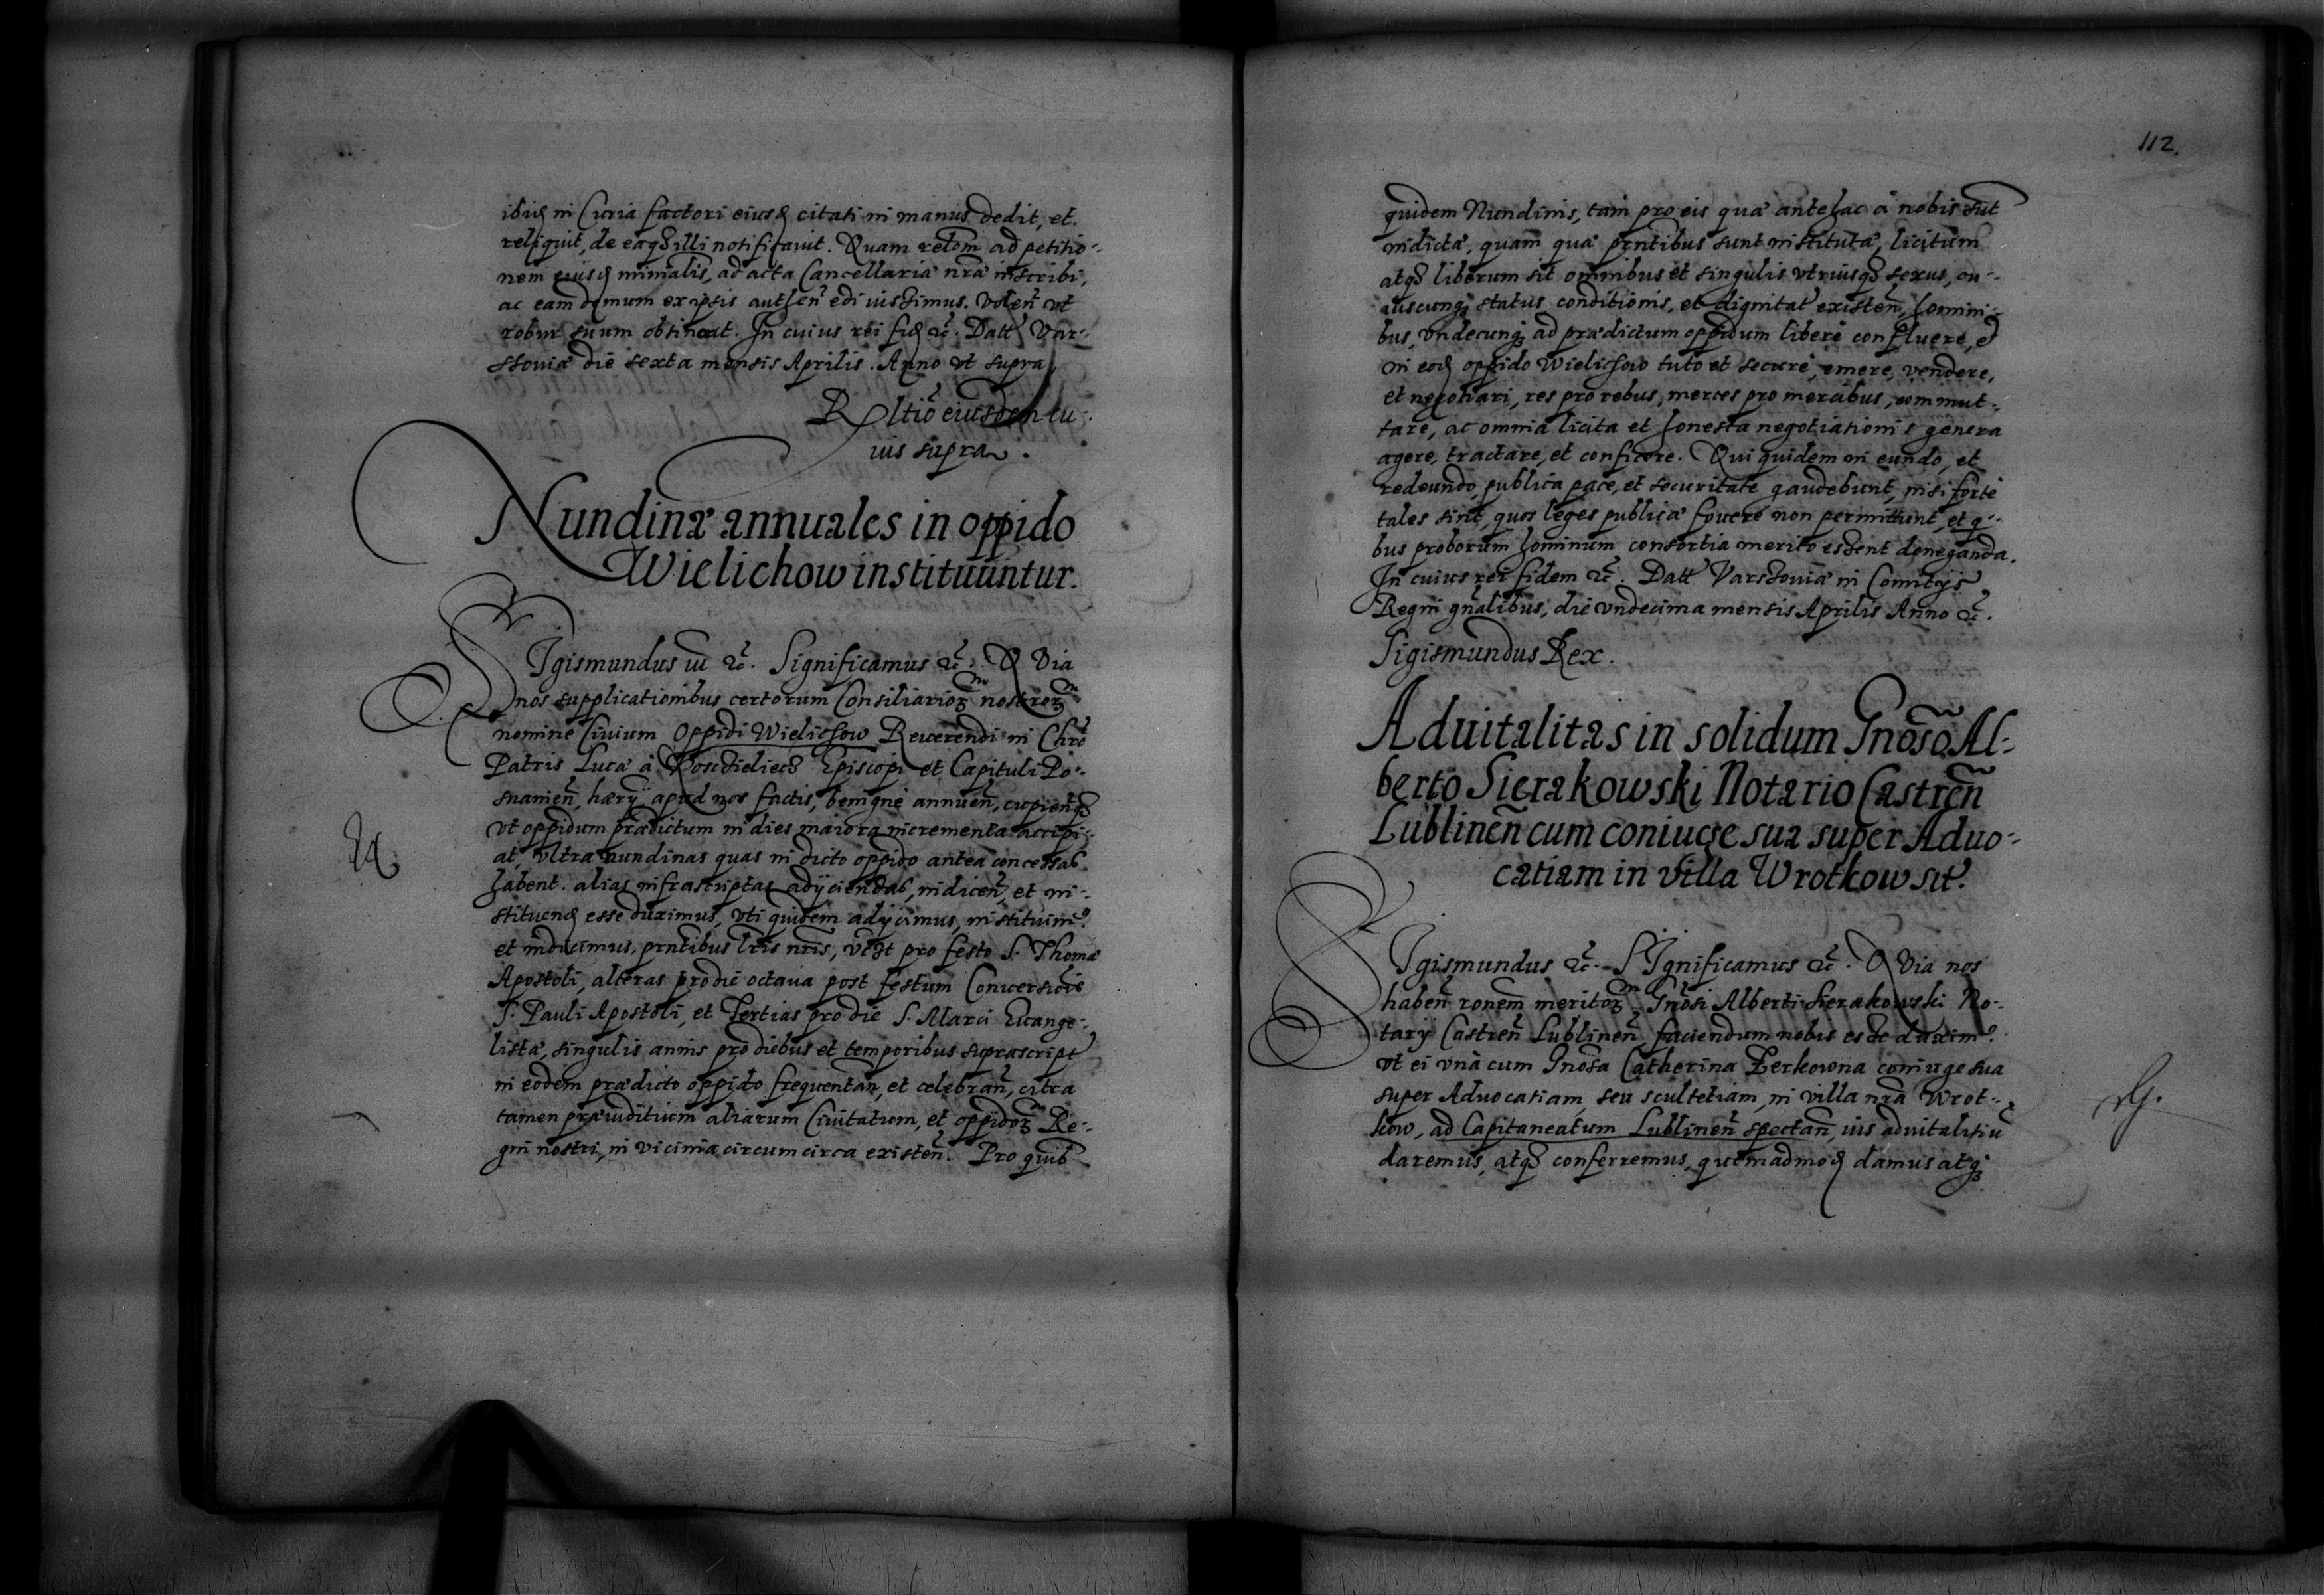 ibiq in Curia factori eiusd citati in manus dedit, et
reliquit, de eaq illi notificauit. Quam relõm ad petitio-
nem eiusd minĩalis, ad acta Cancellariæ nrã inscribi,
ac eam demum ex ipsis authen̄ edi iussimus. volen̄ vt
robur suum obtineat. In cuius rei fid &c. Datt Var-
ssouiæ die sexta mensis Aprilis. Anno vt supra
Rltiõ eiusdem cu-
ius supra.
Nundinæ annuales in oppido
Wielichow instituuntur.
SIgismundus III &c. Significamus &c. Quia
nos supplicationibus certorum Consiliarioꝝ nostroꝝ
nomine Ciuium Oppidi Wielichow Reuerendi in Chrõ
Patris Lucæ à Koscielecz Episcopi et Capituli Po-
snanien̄, hæry apud nos factis, benignè annuen̄, cupienq
vt oppidum prædictum in dies maiora incrementa accipi-
at, vltra nundinas quas in dicto oppido antea concessas
habent. alias infrascriptas adijciendas, indicen̄, et in-
stituend esse duximus, vti quidem adijcimus, instituim9
et indicimus, prntibus lris nris, vczt pro festo S. Thomæ
Apostoli, alteras pro die octaua post festum Conuersiõis
S. Pauli Apostoli, et Tertias pro die S. Marci Euange-
listæ, singulis annis pro diebus et temporibus suprascript
in eodem prædicto oppido frequentan̄, et celebran̄, citra
tamen præiuditium aliarum Ciuitatum, et oppidoꝝ Re-
gni nostri, in vicinia circumcirca existen̄. Pro quib
112.
quidem Nundinis, tam pro eis quæ antehac à nobis sut
indictæ, quam quæ prntibus sunt institutæ, licitum
atq liberum sit omnibus et singulis vtriusq sexus, cu-
iuscunq status, conditionis, et dignitat existen̄, homini-
bus, vndecunq ad prædictum oppidum liberè confluere, et
in eod oppido Wielichow tuto et securè, emere, vendere,
et negotiari, res pro rebus, merces pro mercibus, commut-
tare, ac omnia licita et honesta negotiationis genera
agere, tractare, et conficere. Qui quidem in eundo, et
redeundo, publica pace, et securitate gaudebunt, nisi fortè
tales sint, quos leges publicæ fouere non permittunt, et q-
bus proborum hominum consortia merito essent deneganda.
In cuius rei fidem &c. Datt Varssouiæ in Comitijs
Regni gñalibus, die vndecima mensis Aprilis Anno &c.
Sigismundus Rex.
Aduitalitas in solidum Gnõso Al-
berto Sierakowski Notario Castren̄
Lublinen̄ cum coniuge sua super Aduo-
catiam in villa Wrotkow sit.
SIgismundus &c. SIgnificamus &c. Quia nos
haben̄ ronem meritoꝝ Gnõsi Alberti Sierakowski No-
tarij Castren̄ Lublinen̄ faciendum nobis esse duxim9
vt ei vnà cum Gnõsa Catherina Zerkowna coniuge sua
super Aduocatiam, seu scultetiam, in villa nrã Wrot-
kow, ad Capitaneatum Lublinen̄ spectan̄, ius aduitalitiũ
daremus, atq conferremus, quemadmod damus atq